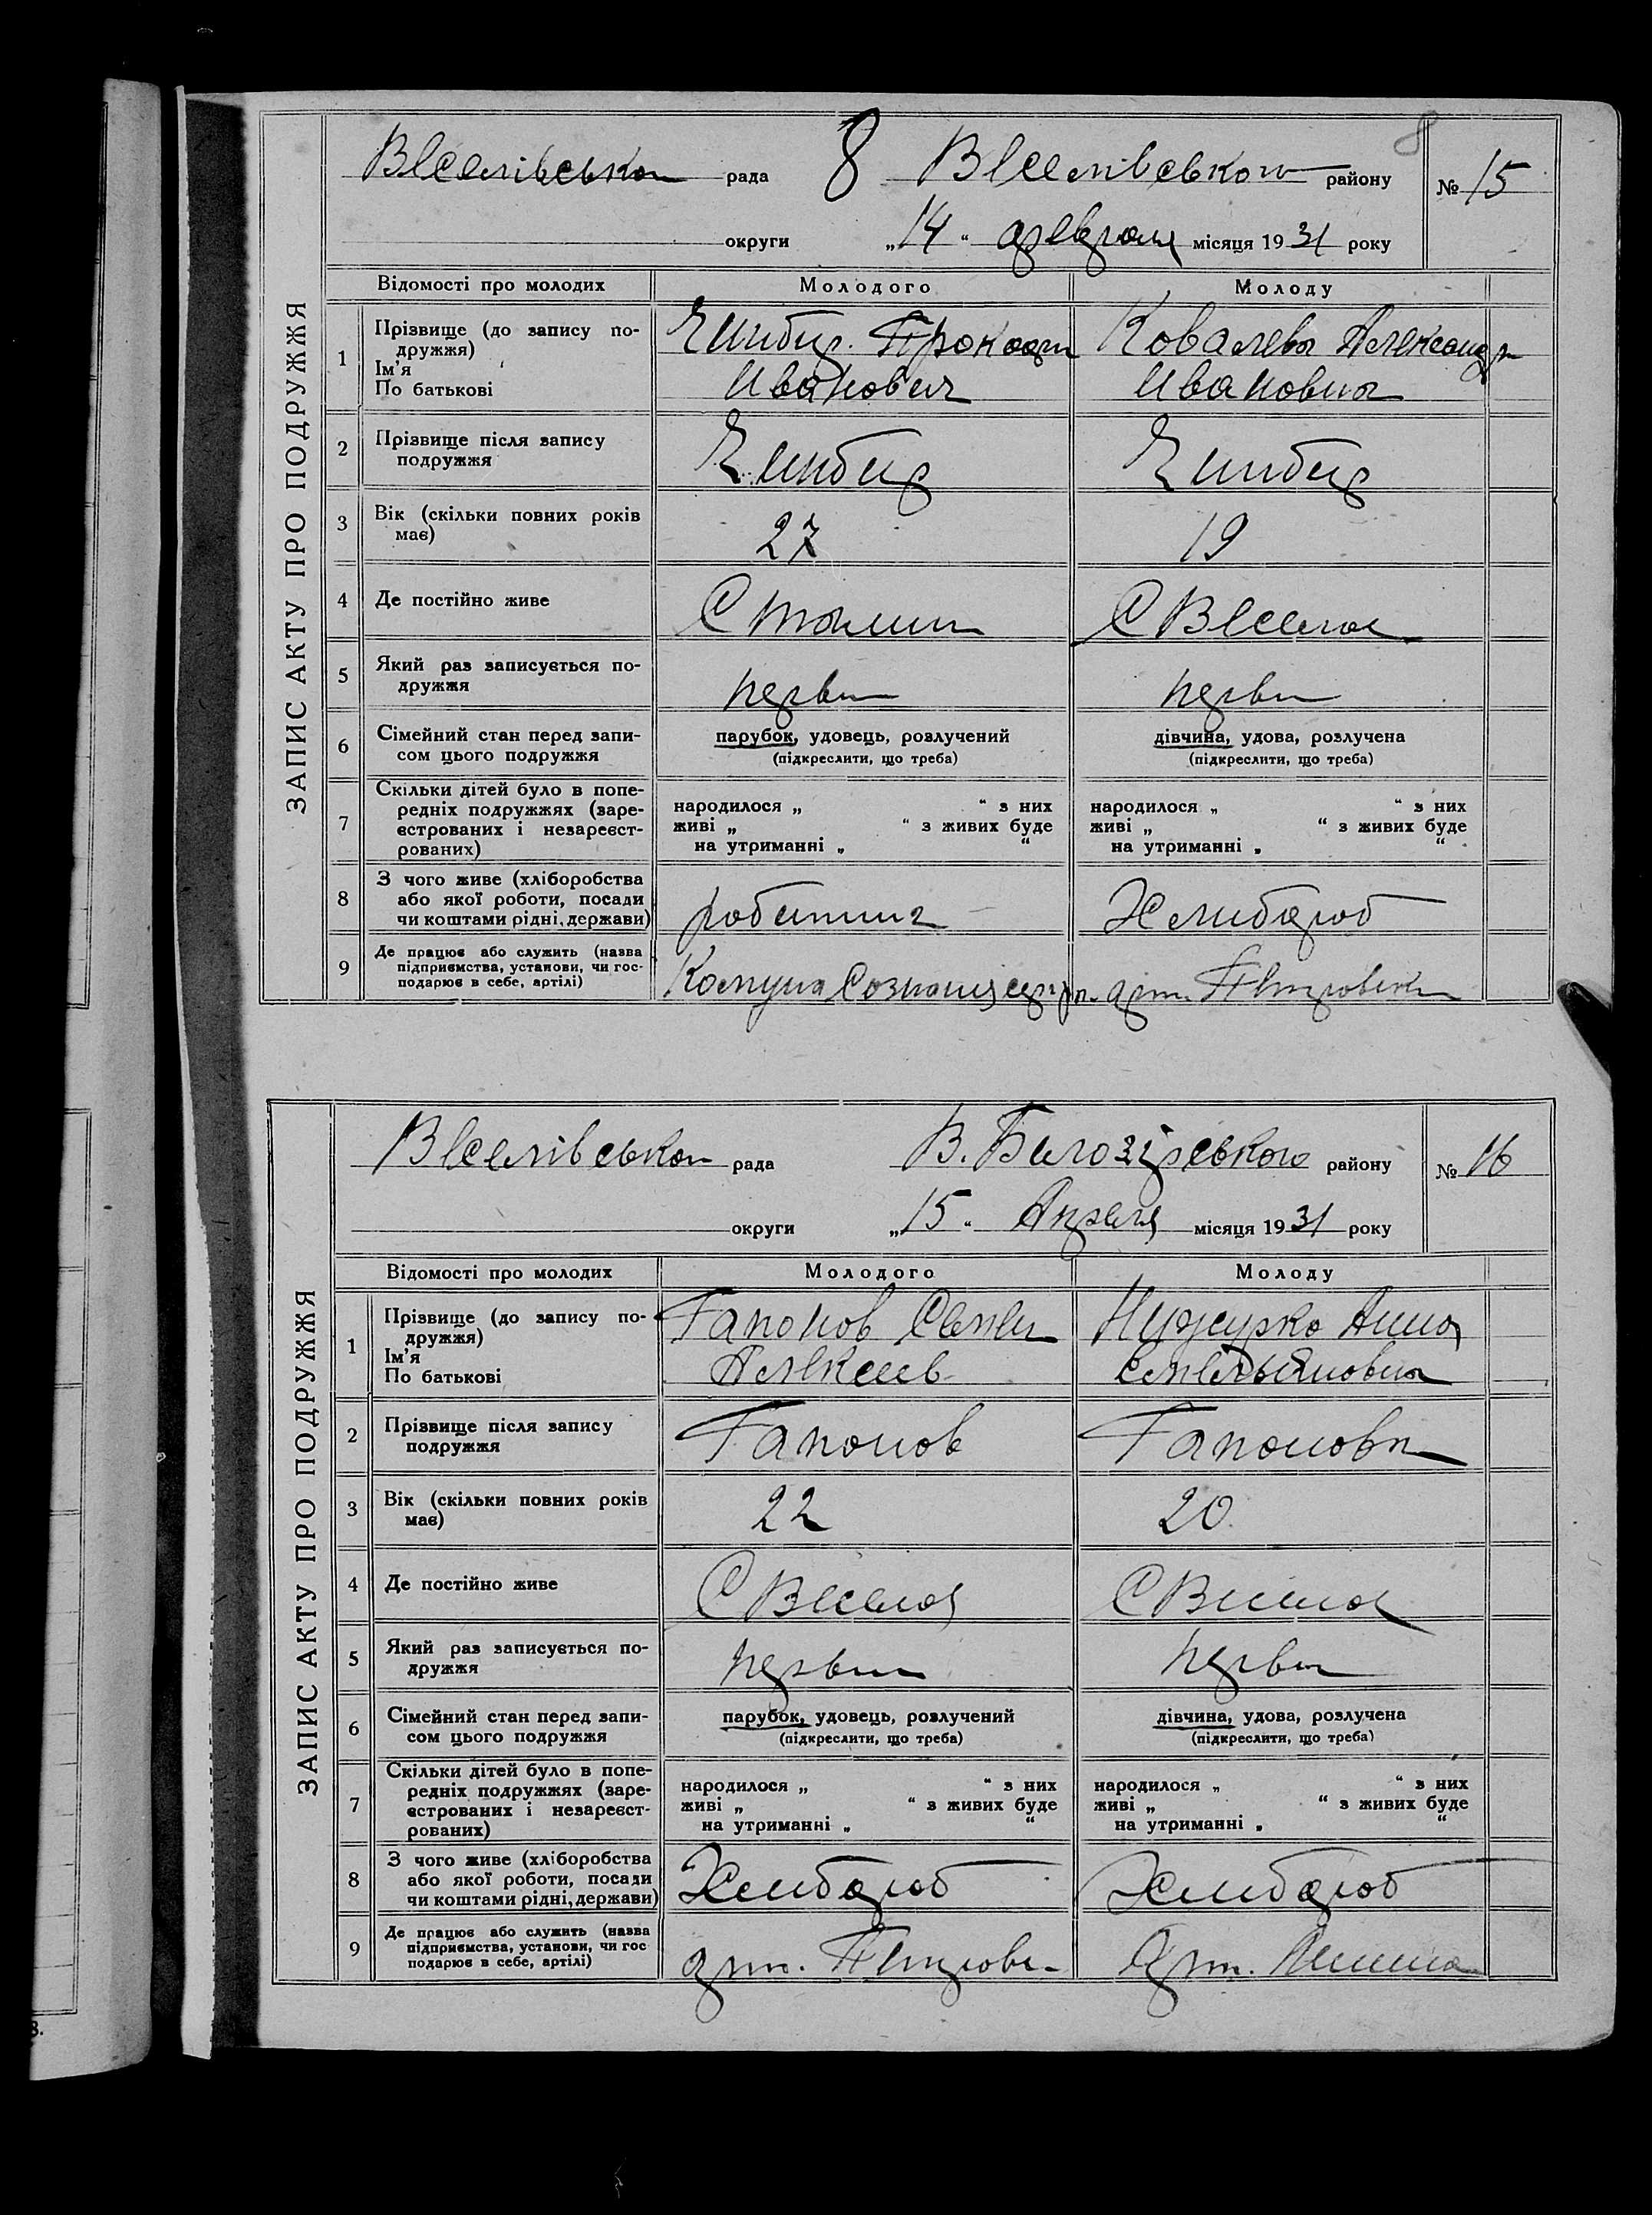 ЗАПИС АКТУ ПРО ПОДРУЖЖЯ
Веселівська рада 8 Веселівського району № 15
8
округи „14“ февраля місяця 1931 року
Відомості про молодих Молодого Молоду
1 Прізвище (до запису по-
дружжя)
Ім’я
По батькові
Иванович
Ковалева Александра
Ивановна
2 Прізвище після запису
подружжя
3 Вік (скільки повних років
має)
27 19
4 Де постійно живе
С Весела
5 Який раз записується по-
дружжя
перви перви
6 Сімейний стан перед запи-
сом цього подружжя
парубок, удовець, розлучений
(підкреслити, що треба)
дівчина, удова, розлучена
(підкреслити, що треба)
7 Скільки дітей було в попе-
редніх подружжях (заре-
єстрованих і незареєст-
рованих)
народилося „ “ з них
живі „ “ з живих буде
на утриманні „ “
народилося „ “ з них
живі „ “ з живих буде
на утриманні „ “
8 З чого живе (хліборобства
або якої роботи, посади
чи коштами рідні, держави)
Хлибороб
9 Де працює або служить (назва
підприємства, установи, чи гос-
подарює в себе, артілі)
Комуна арт.
ЗАПИС АКТУ ПРО ПОДРУЖЖЯ
Веселівська рада В. Билозірського району № 16
округи „15“ Апреля місяця 1931 року
Відомості про молодих Молодого Молоду
1 Прізвище (до запису по-
дружжя)
Ім’я
По батькові
Гапонов
Алексеев
Анна
Емельяновна
2 Прізвище після запису
подружжя
Гапонов Гапонова
3 Вік (скільки повних років
має)
22 20
4 Де постійно живе
С Весела С Весела
5 Який раз записується по-
дружжя
перви перви
6 Сімейний стан перед запи-
сом цього подружжя
парубок, удовець, розлучений
(підкреслити, що треба)
дівчина, удова, розлучена
(підкреслити, що треба)
7 Скільки дітей було в попе-
редніх подружжях (заре-
єстрованих і незареєст-
рованих)
народилося „ “ з них
живі „ “ з живих буде
на утриманні „ “
народилося „ “ з них
живі „ “ з живих буде
на утриманні „ “
8 З чого живе (хліборобства
або якої роботи, посади
чи коштами рідні, держави)
Хлибороб Хлибороб
9 Де працює або служить (назва
підприємства, установи, чи гос
подарює в себе, артілі)
арт. арт.